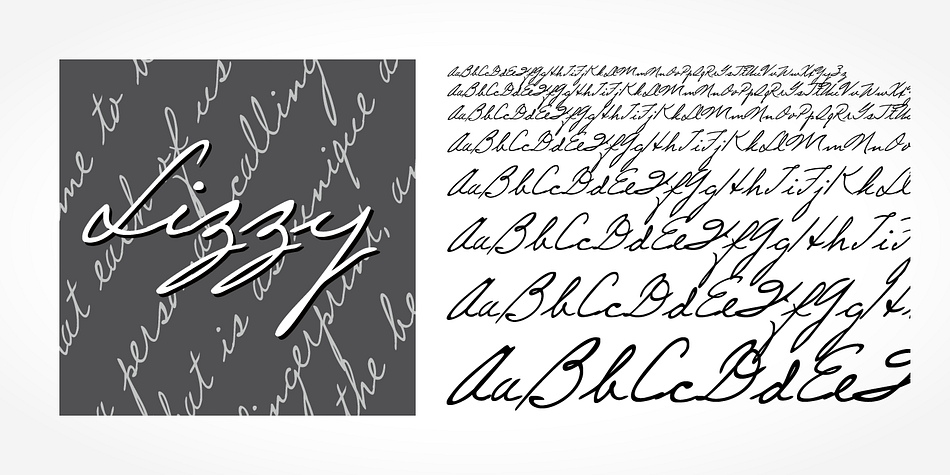 me to
each of us
calling
Lizzy
at each
a person
unique
that is a
fingerprint,
the be
AaBbCcDdEeFfGgHhIiJjKkLlMmNnOoPpQqRrSsTtUuVvWwXxYyZz
AaBbCcDdEeFfGgHhIiJjKkLlMmNnOoPpQqRrSsTtUuVvWwXx
AaBbCcDdEeFfGgHhIiJjKkLlMmNnOoPpQqRrSsTtUu
AaBbCcDdEeFfGgHhIiJjKkLlMmNnOo
AaBbCcDdEeFfGgHhIiJjKkLl
AaBbCcDdEeFfGgHhIiJ
AaBbCcDdEeFfGgH
AaBbCcDdEeF